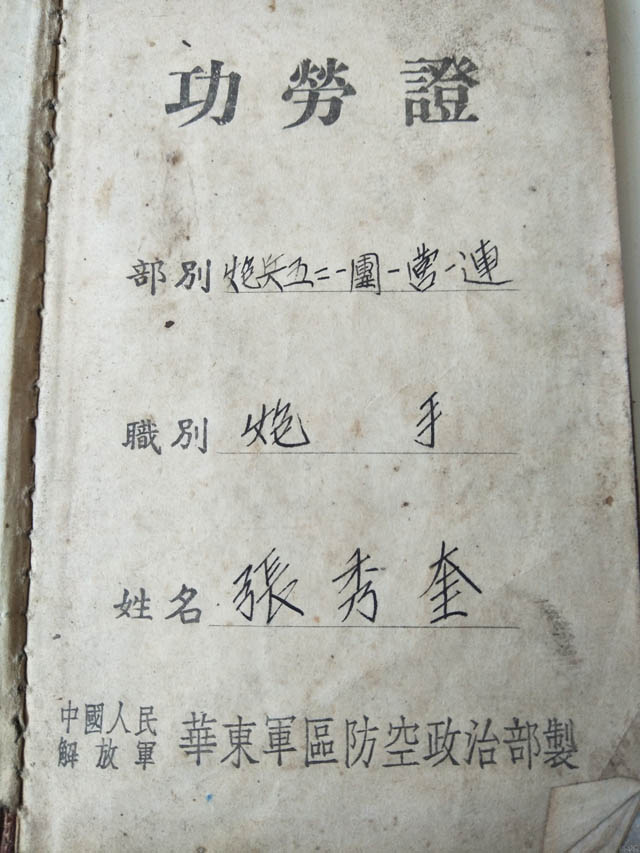 功勞證
部別 炮兵五二一團一營一連
職別 炮手
姓名 張秀奎
中國人民解放軍 華東軍區防空政治部製